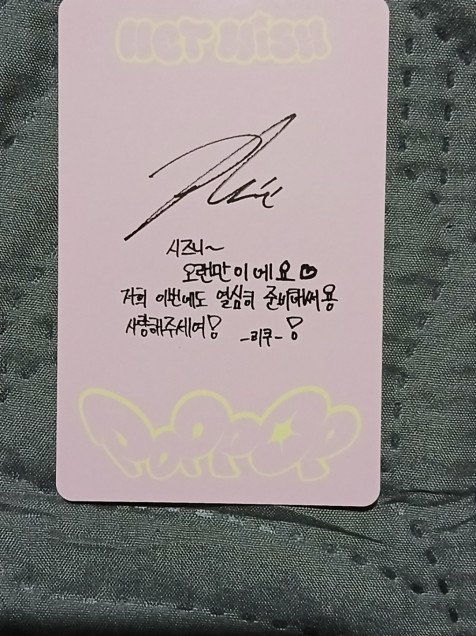 NCT WISH
시즈니~
오랜만이에요♡
저희 이번에도 열심히 준비해써용
사랑해주세여!
-리쿠- !
poppop